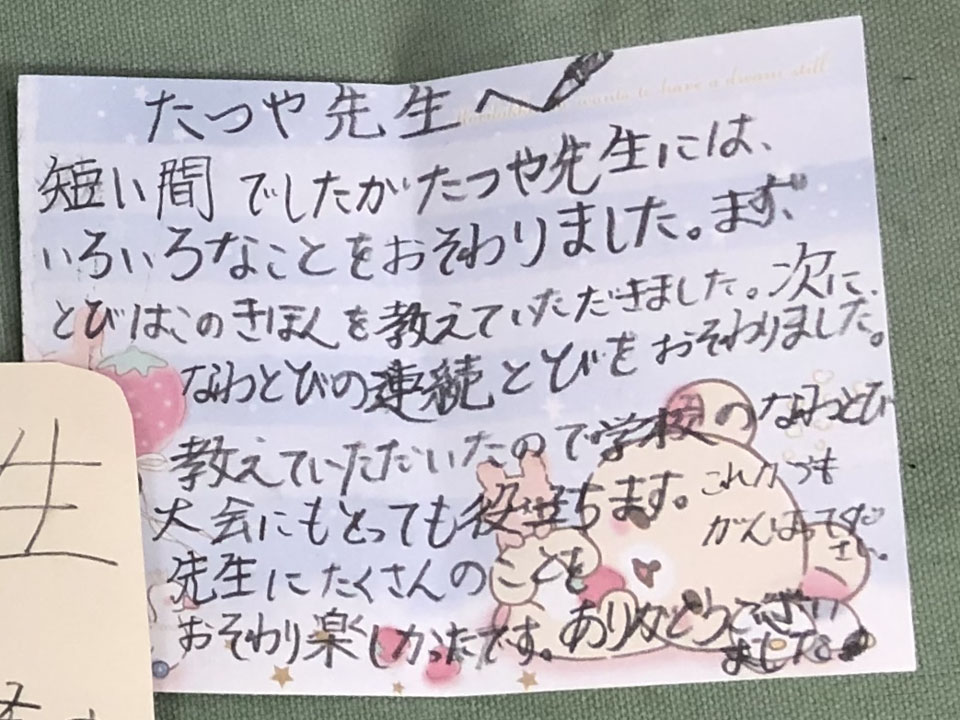 たつや先生へ
短い間でしたがたつや先生には、
いろいろなことをおそわりました。まず、
とびばこのきほんを教えていただきました。次に、
なわとびの連続とびをおそわりました。
教えていただいたので学校のなわとび
大会にもとっても役立ちます。
これからも
がんばってくだ
さい。
先生にたくさんのことを
おそわり楽しかったです。ありがとうござい
ました
wants to have a dream still
生